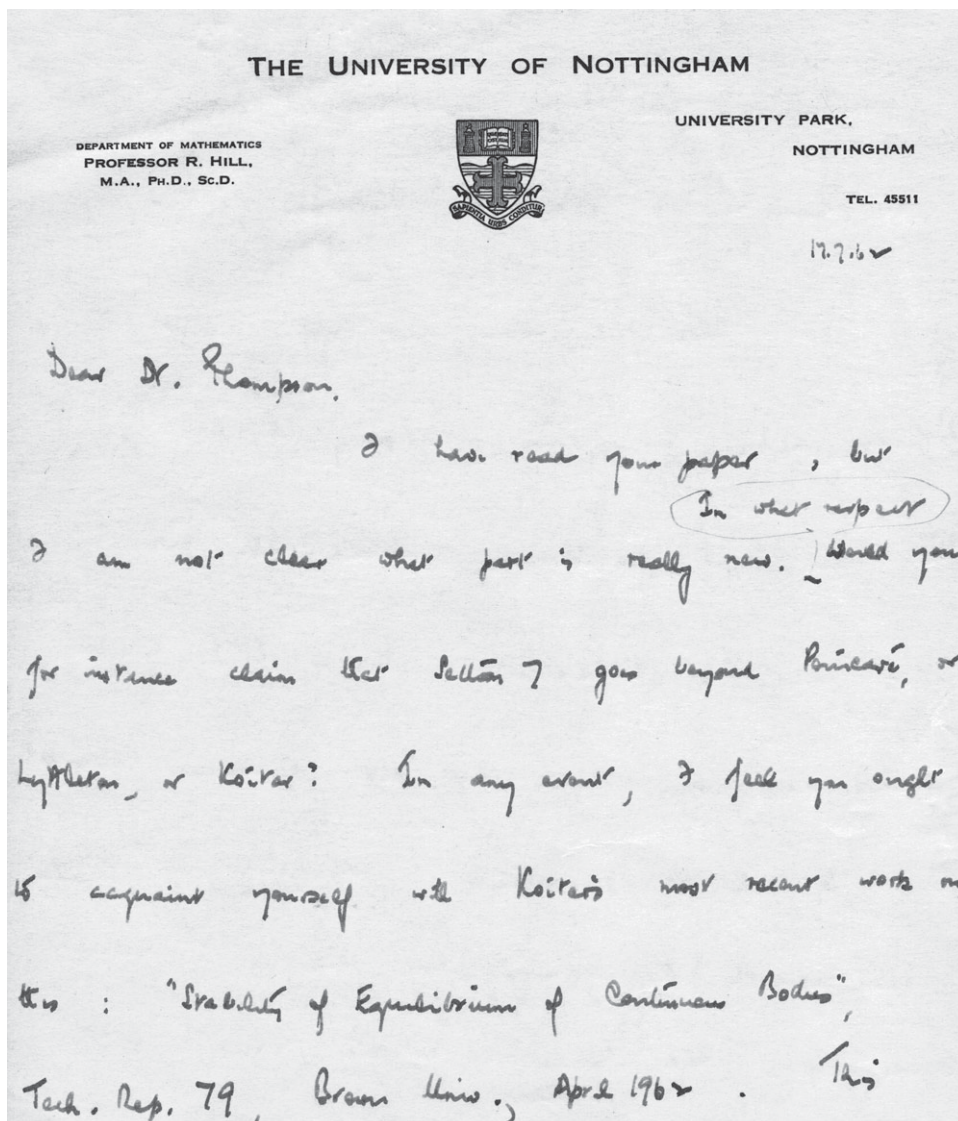 THE UNIVERSITY OF NOTTINGHAM
DEPARTMENT OF MATHEMATICS
PROFESSOR R. HILL,
M.A., PH.D., SC.D.
SAPIENTIA URBS CONDITUR
UNIVERSITY PARK,
NOTTINGHAM
TEL. 45511
17.7.62
Dear Dr. Thompson.
I have read your paper, but
In what respect
I am not clear what part is really new. Would you
for instance claim that Section 7 goes beyond Poincaré, or
Lyttleton, or Koiter? In any event, I feel you ought
to acquaint yourself with Koiter's most recent work on
this : "Stability of Equilibrium of Continuous Bodies",
Tech. Rep. 79, Brown Univ., April 1962. This